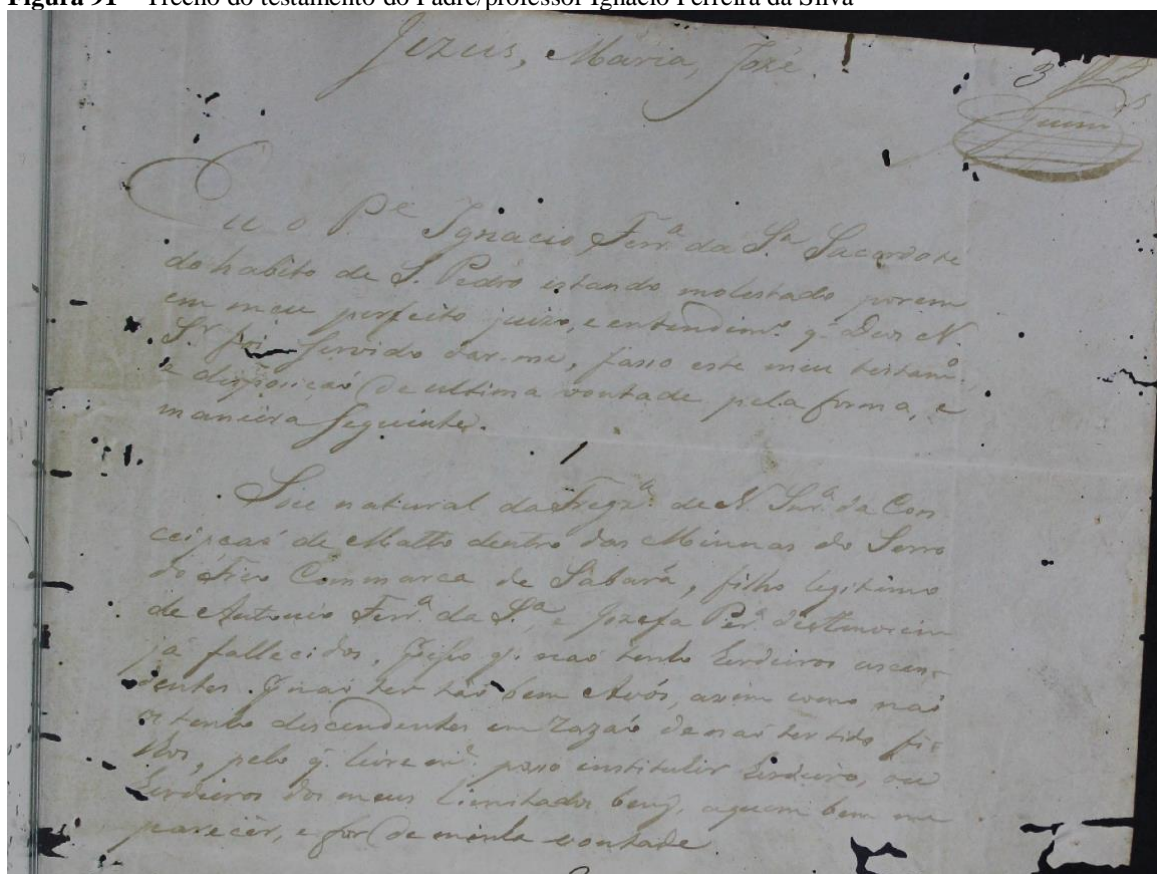 Figura 91 – Trecho do testamento do Padre/professor Ignacio Ferreira da Silva
Jezus, Maria, Jozé.
3
Eu o P.e Ignacio Ferr.a da S.a Sacerdote
do habito de S. Pedro estando molestado porem
em meu perfeito juizo, e entendim.o q. Deos N.
S.r foi servido dar-me, fasso este meu testam.o
e disposiçaõ de ultima vontade pela forma, e
maneira seguinte.
Sou natural da Freg.a de N. Snr.a da Con
ceipcaõ de Matto dentro das Minnas do Serro
do Frio Commarca de Sabará, filho legitimo
de Antonio Ferr.a da S.a, e Jozefa Per.a
já fallecidos, q. naõ tenho Erdeiros ascen-
dentes. naõ ter taõ bem Avós, assim como naõ
tenho descendentes em razaõ de naõ ter tido fi-
lhos, pelo q. livrem.e posso instituir Erdeiro, ou
Erdeiros dos meus limitados bens, aquem bem me
parecer, e for de minha vontade.